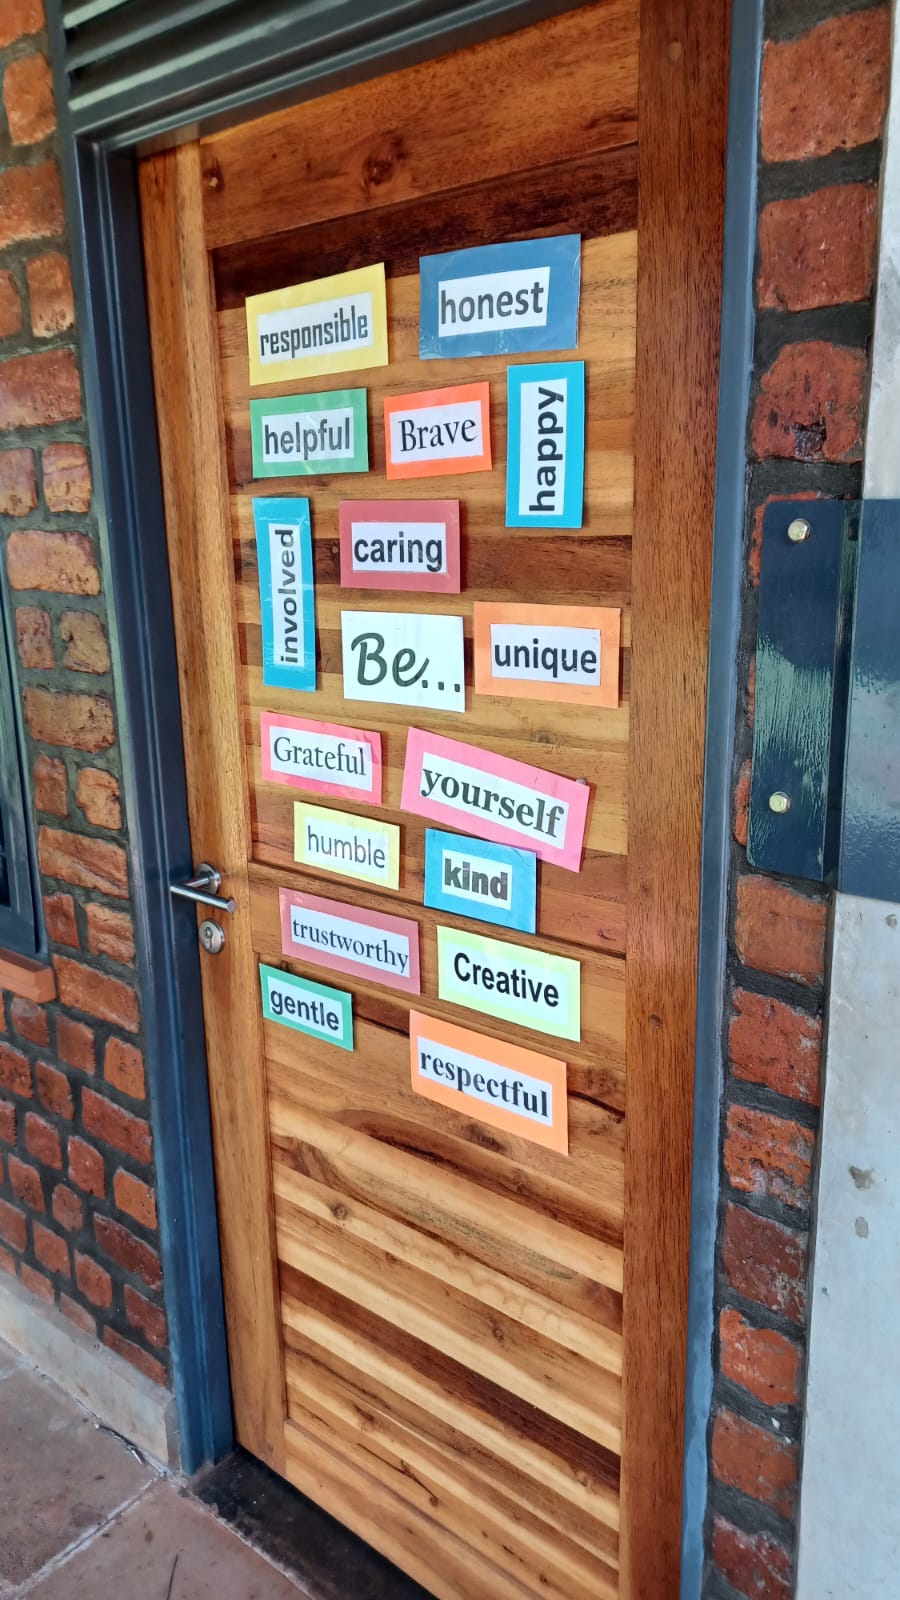 responsible
honest
helpful
Brave
happy
involved
caring
Be...
unique
Grateful
yourself
humble
kind
trustworthy
Creative
gentle
respectful